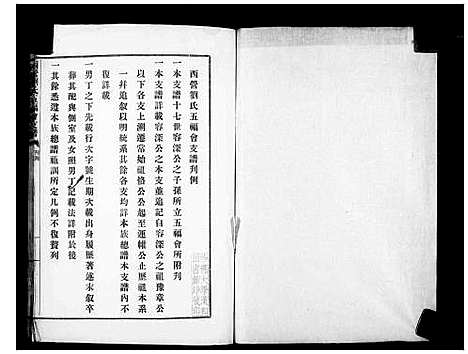 西營劉氏五福會支譜刋例
一本支譜十七世容深公之子孫所立五福會所附刋
一本支譜詳載容深公之本支並追記自容深公之祖豫章公
以下各支上溯遷常始祖恪公公起至運幃公止歷祖本系
一并追叙以明統系其餘各支均詳本族總譜本支譜內不
復詳載
一男丁之下先載行次字號生期次載出身履歷著述末叙卒
葬其配與側室及女照男丁記載法詳附於後
一其餘悉遵本族總譜祖訓所定凡例不復贅列